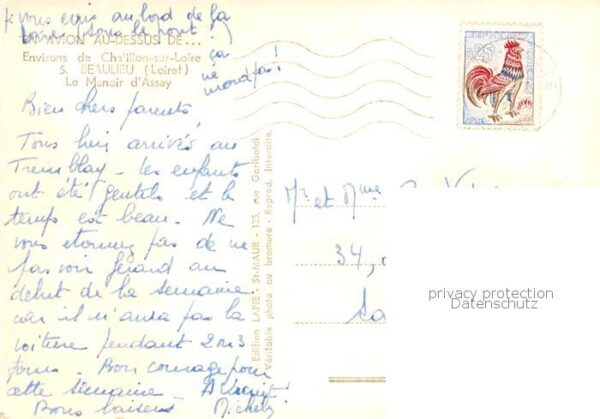 je vous écris au bord de la
Loire (sous le pont!
ça
ne
mord pas!
EN AVION AU-DESSUS DE...
Environs de Châtillon-sur-Loire
5. BEAULIEU (Loiret)
Le Manoir d'Assay
Bien chers parents,
Tous bien arrivés au
Tremblay - les enfants
ont été gentils et le
temps est beau. Ne
vous étonnez pas de ne
pas voir Gérard au
début de la semaine
car il n'aura pas la
voiture pendant 2 ou 3
jours. Bon courage pour
cette semaine - A bientôt!
Bons baisers Michel
Edition LAPIE, St-MAUR - 125, rue Garibaldi
Véritable photo au bromure - Reprod. Interdite.
0,25
Mr et Mme
34,
privacy protection
Datenschutz